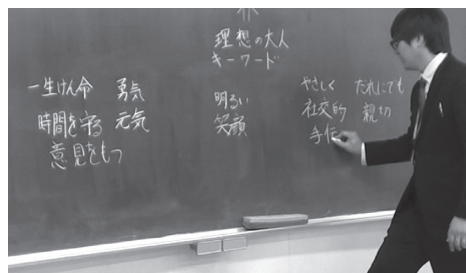 理想の大人
キーワード
一生けん命　勇気
時間を守る　元気
意見をもつ
明るい
笑顔
やさしく　だれにでも
社交的　親切
手伝